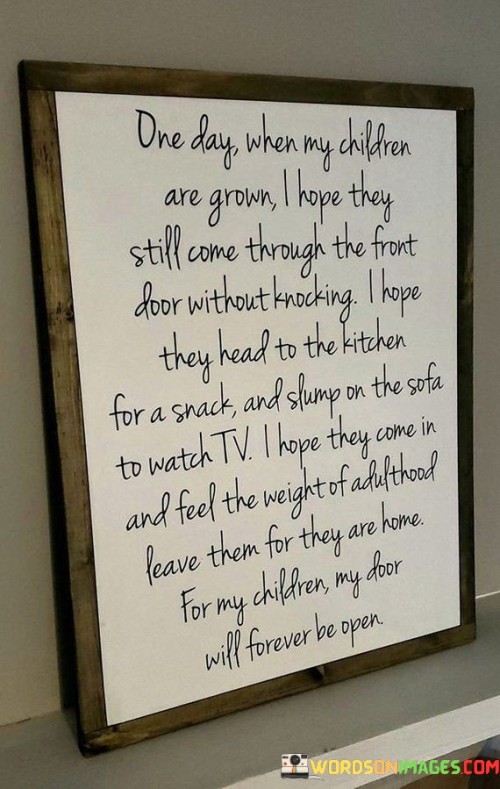 One day, when my children
are grown, I hope they
still come through the front
door without knocking. I hope
they head to the kitchen
for a snack, and slump on the sofa
to watch TV. I hope they come in
and feel the weight of adulthood
leave them for they are home.
For my children, my door
will forever be open.
WORDSONIMAGES.COM